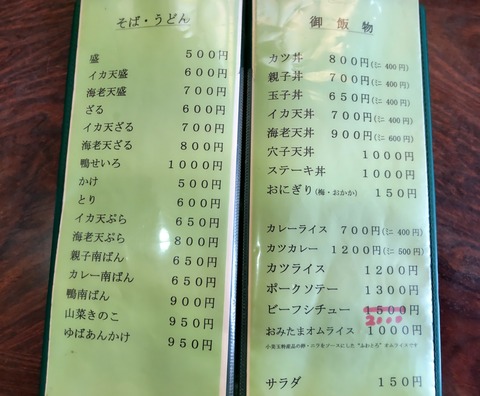 そば・うどん
盛 500円
イカ天盛 600円
海老天盛 700円
ざる 600円
イカ天ざる 700円
海老天ざる 800円
鴨せいろ 1000円
かけ 500円
とり 600円
イカ天ぷら 650円
海老天ぷら 800円
親子南ばん 650円
カレー南ばん 650円
鴨南ばん 900円
山菜きのこ 950円
ゆばあんかけ 950円
御飯物
カツ丼 800円(ミニ400円)
親子丼 700円(ミニ400円)
玉子丼 650円(ミニ400円)
イカ天丼 700円(ミニ400円)
海老天丼 900円(ミニ600円)
穴子天丼 1000円
ステーキ丼 1000円
おにぎり(梅・おかか) 150円
カレーライス 700円(ミニ400円)
カツカレー 1200円(ミニ500円)
カツライス 1200円
ポークソテー 1300円
ビーフシチュー 1500円
2000
おみたまオムライス 1000円
サラダ 150円